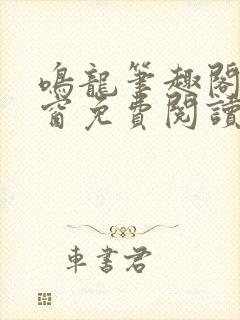 鳴龍筆趣閣
窗免費閱讀
車書君